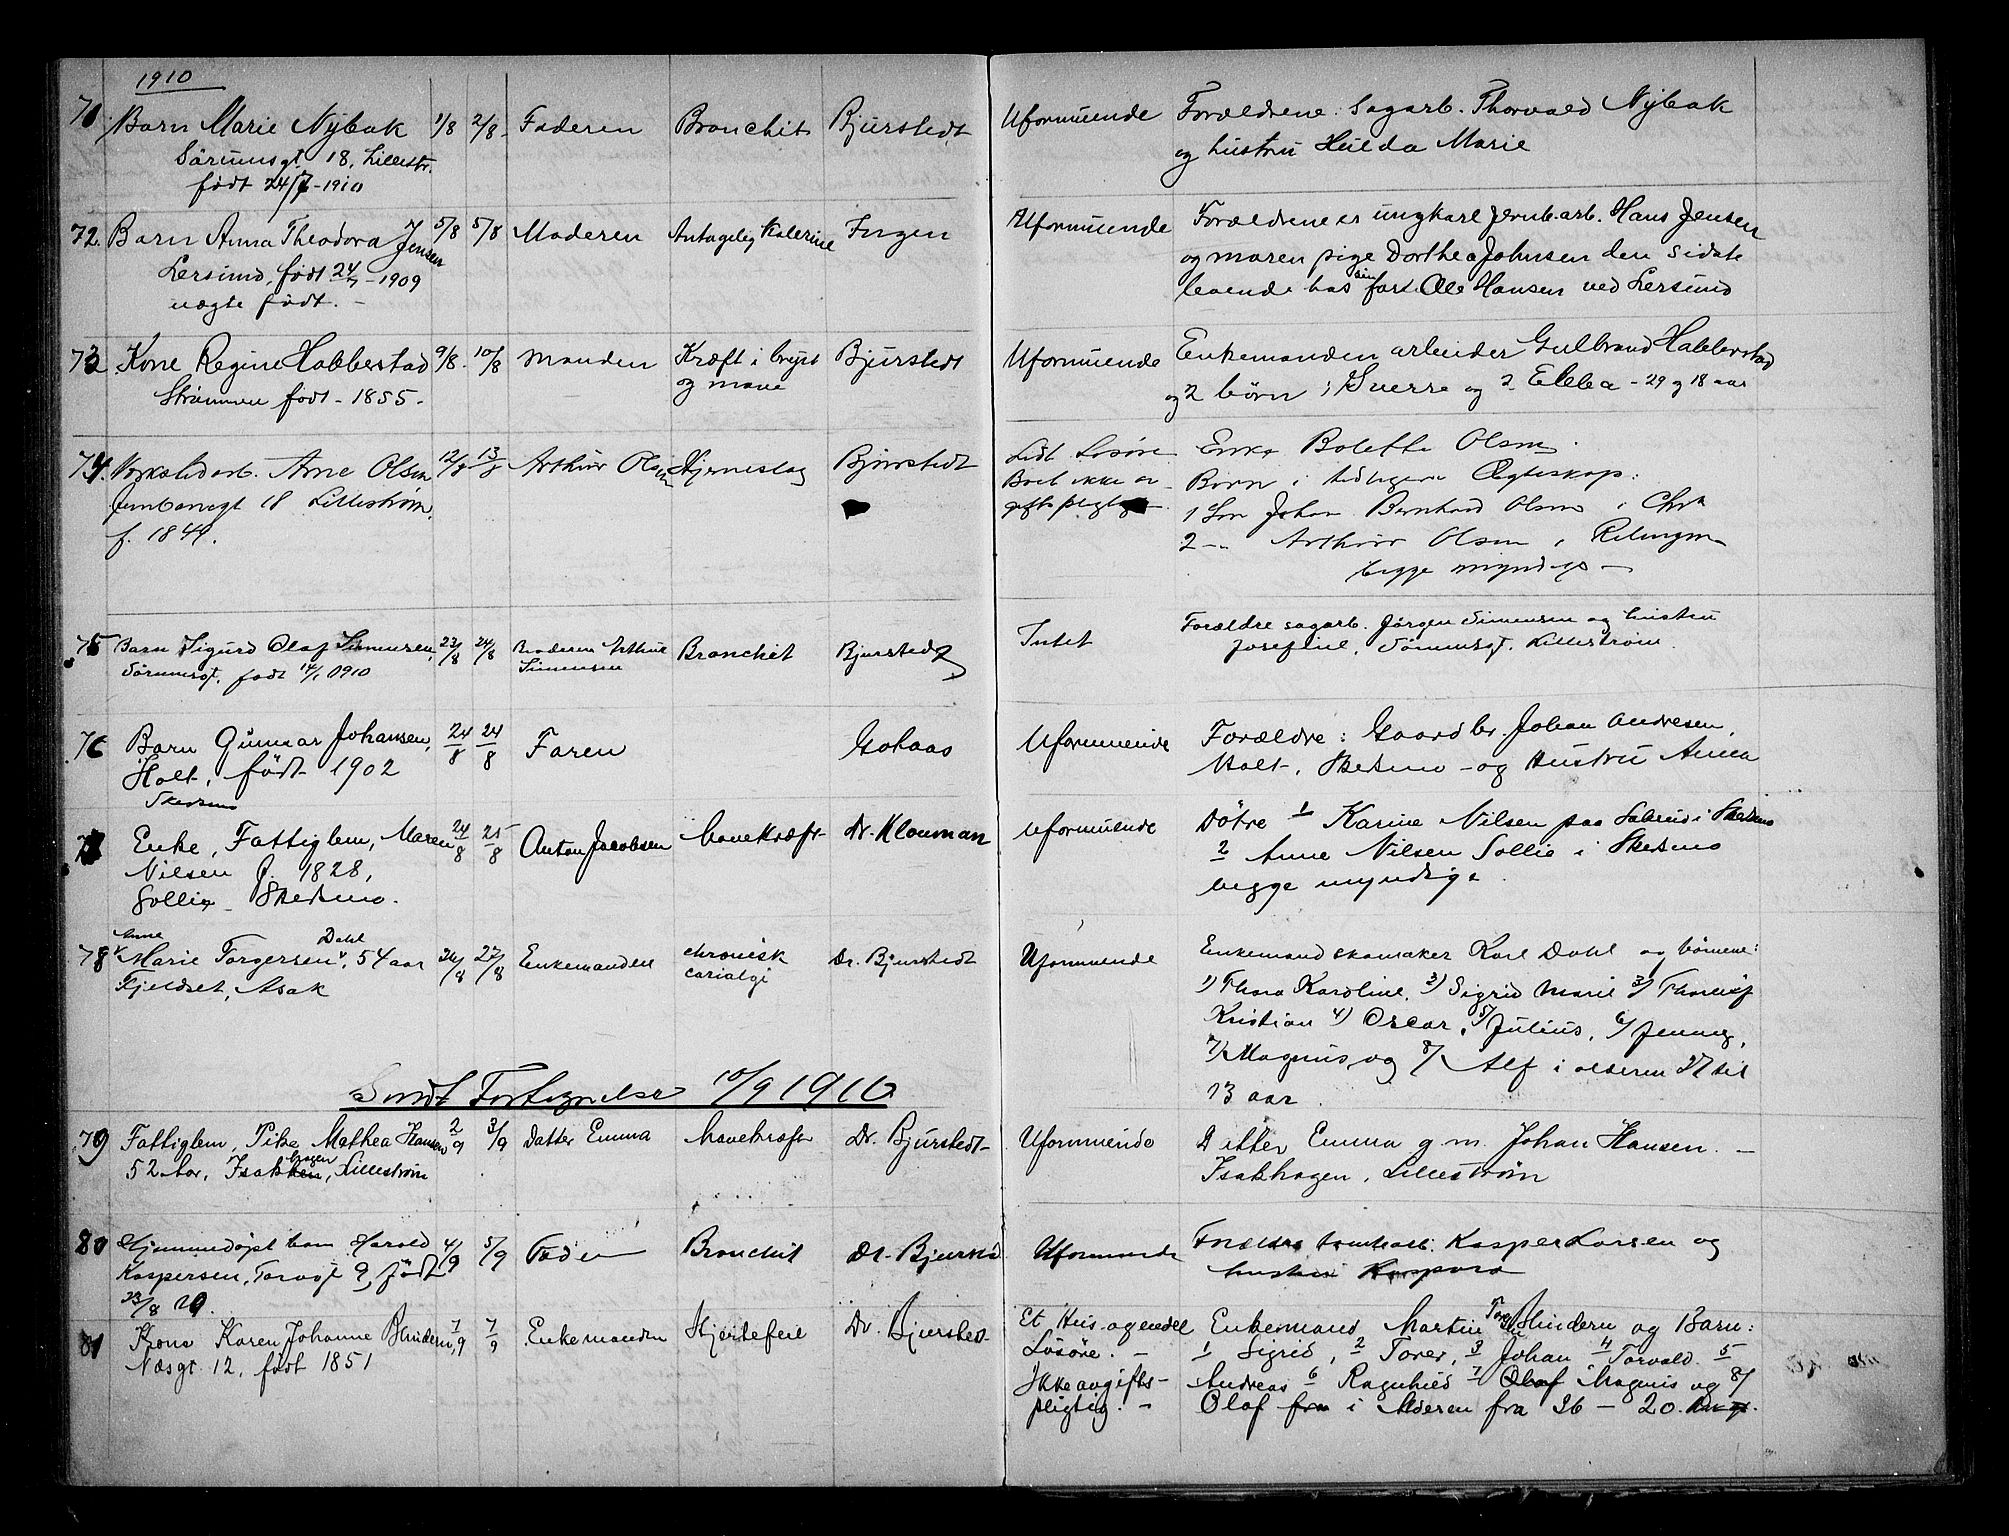 1910
71 Barn Marie Nybak 1/8 2/8 Faderen Bronchit Bjurstedt Uformuende Forældrene: Sagarb. Thorvald Nybak
Sørumsgt. 18, Lillestr. og hustru Hulda Marie
født 24/7-1910
72. Barn Anna Theodora Jensen 5/8 5/8 Moderen Antagelig Kolerine Ingen Uformuende Forældrene er ungkarl jernb.arb. Hans Jensen
Lersund, født 24/7-1909 og moren pige Dorthea Johnsen den sidste
uægte født. - boende hos sin far Ole Hansen ved Lersund
73 Kone Regine Habberstad 9/8. 10/8 Manden Kræft i bryst Bjurstedt Uformuende Enkemanden arbeider Gulbrand Habberstad
Strømmen født - 1855. og mave og 2 børn 1 Sverre og 2 Ebba - 29 og 18 aar
74. Arne Olsen 12/8 13/8 Arthur Olsen Hjerneslag Bjurstedt Lidt Løsøre Enke Bolette Olsen.
Jernbanegt 18 Lillestrøm. Boet ikke av- Børn i tidligere Ægteskap:
f. 1841. giftspligtigt 1 Søn Johan Bernhard Olsen i Chra
2 -"- Arthur Olsen i Relingen
begge myndige -
75 Barn Sigurd Olaf Simensen, 23/8 24/8 Broderen Arthur Bronchit Bjurstedt Intet Forældre sagarb. Jørgen Simensen og hustru
Sørumsgt. født 14/1 1910 Simensen Josefine, Sørumsgt. Lillestrøm.
76 Barn Gunnar Johansen, 24/8 24/8 Faren Gohaas Uformuende Forældre: Gaardbr. Johan Andresen,
Holt, født 1902 Holt, Skedsmo - og Hustru Anna
Skedsmo
77 Enke, Fattiglem, Maren 24/8 25/8 Anton Jacobsen Mavekræft Dr. Klouman Uformuende Døtre 1 Karine Nilsen paa i Skedsmo
Nilsen f. 1828, 2 Anne Nilsen Sollie i Skedsmo
Sollie Skedsmo. begge myndige.
Anne Dahl
78 Marie Torgersen, 54 aar 26/8 27/8 Enkemanden chronisk Dr. Bjurstedt Uformuende Enkemand skomaker Karl Dahl og børnene:
Fjeldset, Asak carialgi 1) Thora Karoline, 2) Sigrid Marie 3) Thorleif
Kristian 4) Oscar, 5) Julius, 6) Jenny,
7) Magnus, og 8) Alf i alderen 27 til
13 aar.
Sendt Fortegnelse 10/9 1910
79 Fattiglem, Pike Mathea Hansen 2/9 3/9 Datter Emma Mavekræft Dr. Bjurstedt Uformuende Datter Emma g.m. Johan Hansen. -
52 Aar, Isakhagen, Lillestrøm Isakhagen, Lillestrøm
80 Hjemmedøpt barn Harald 4/9 5/9 Fader Bronchit Dr. Bjurstedt Uformuende Forældre Kasper Larsen og
Kaspersen, Torvgt 9, født hustru Kaspara
23/8
81 Kone Karen Johanne Blindern, 7/9 7/9 Enkemanden Hjertefeil Dr. Bjurstedt Et Hus og endel Enkemand Martin Blindern og Barn:
Næsgt. 12, født 1851 Løsøre. - 1 Sigrid, 2 Torer, 3 Johan 4 Torvald 5
Ikke avgifts- Andreas 6 Ragnhild 7 Olaf Magnus og 8/
pligtig. - Olaf fra i Alderen fra 36 - 20.